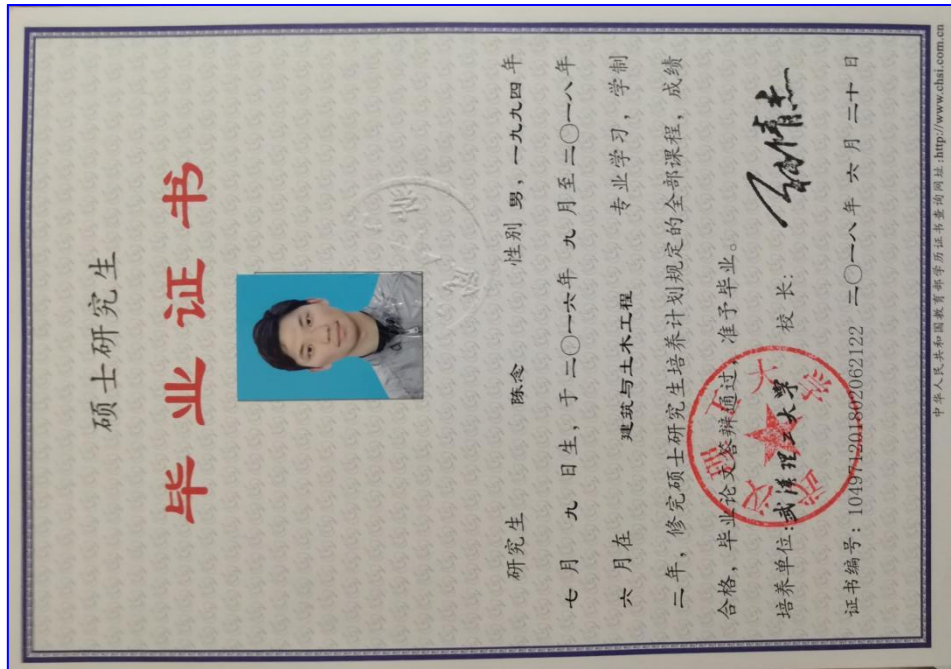 硕士研究生
毕业证书
研究生 陈念 性别 男，一九九四年
七月 九 日生，于 二〇一六年 九 月至二〇一八年
六 月在 建筑与土木工程 专业学习，学制
二年，修完硕士研究生培养计划规定的全部课程，成绩
合格，毕业论文答辩通过，准予毕业。
培养单位：武汉理工大学 校 长：
证书编号：104971201802062122 二〇一八年 六 月 二十 日
武汉理工大学
中华人民共和国教育部学历证书查询网址:http://www.chsi.com.cn